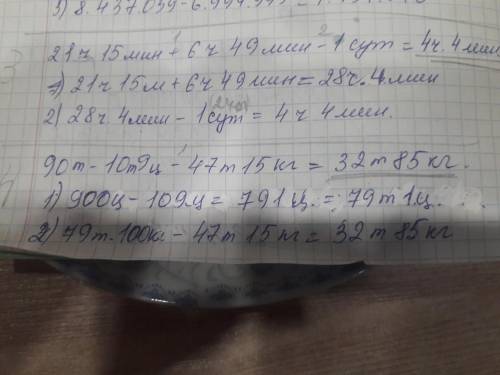 3) 8.437.059-6.994.595=1.
21ч 15мин + 6ч 49мин - 1сут = 4ч. 4мин
1) 21ч 15м + 6ч 49мин = 28ч. 4мин
2) 28ч. 4мин - 1сут (24ч) = 4ч 4мин.
90т - 10т9ц - 47т 15кг = 32т 85кг.
1) 900ц - 109ц = 791ц. = 79т 1ц.
2) 79т. 100кг - 47т 15кг = 32т 85кг